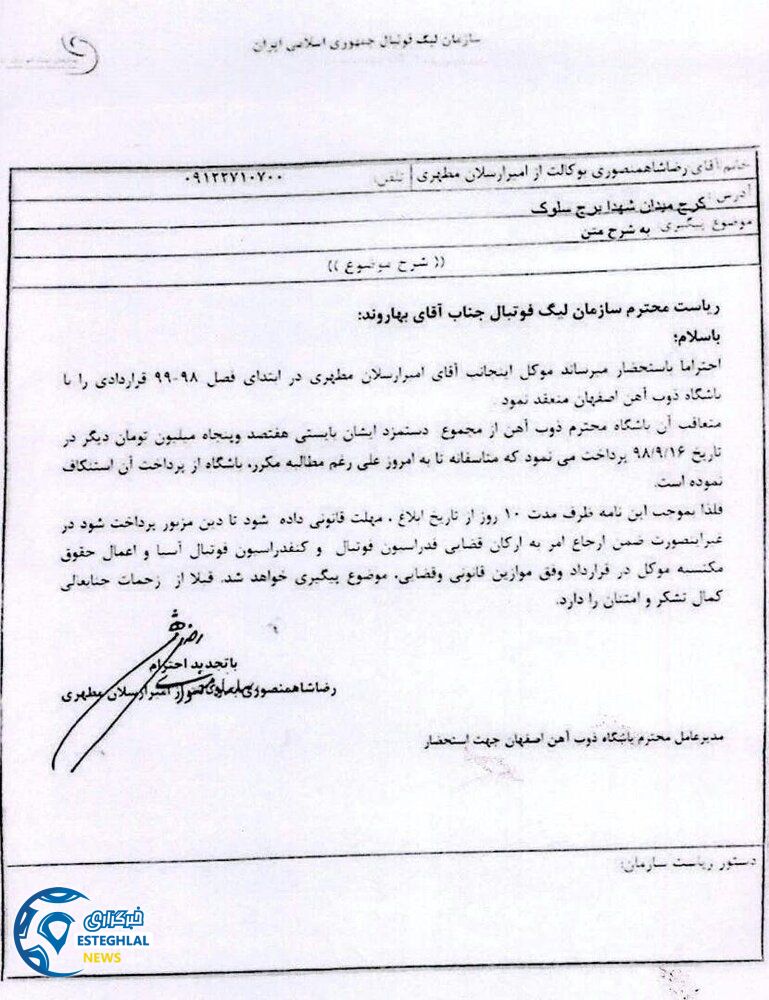 سازمان لیگ فوتبال جمهوری اسلامی ایران
خانم/آقای رضاشاهمنصوری بوکالت از امیرارسلان مطهری تلفن: ۰۹۱۲۲۷۱۰۷۰۰
آدرس: کرج میدان شهدا برج سلوک
موضوع پیگیری: به شرح متن
(( شرح موضوع ))
ریاست محترم سازمان لیگ فوتبال جناب آقای بهاروند:
باسلام؛
احتراما باستحضار میرساند موکل اینجانب آقای امیرارسلان مطهری در ابتدای فصل ۹۸-۹۹ قراردادی را با
باشگاه ذوب آهن اصفهان منعقد نمود
متعاقب آن باشگاه محترم ذوب آهن از مجموع دستمزد ایشان بایستی هفتصد وپنجاه میلیون تومان دیگر در
تاریخ ۹۸/۹/۱۶ پرداخت می نمود که متاسفانه تا به امروز علی رغم مطالبه مکرر، باشگاه از پرداخت آن استنکاف
نموده است.
فلذا بموجب این نامه ظرف مدت ۱۰ روز از تاریخ ابلاغ ، مهلت قانونی داده شود تا دین مزبور پرداخت شود در
غیراینصورت ضمن ارجاع امر به ارکان قضایی فدراسیون فوتبال و کنفدراسیون فوتبال آسیا و اعمال حقوق
مکتسبه موکل در قرارداد وفق موازین قانونی وقضایی، موضوع پیگیری خواهد شد. قبلا از زحمات جنابعالی
کمال تشکر و امتنان را دارد.
باتجدید احترام
رضاشاهمنصوری امیرارسلان مطهری
مدیرعامل محترم باشگاه ذوب آهن اصفهان جهت استحضار
دستور ریاست سازمان:
خبرگزاری
ESTEGHLAL
NEWS